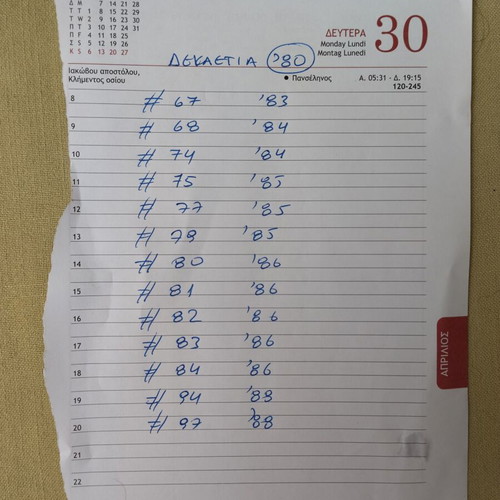 Δ Μ 7 14 21 28
Τ Τ 1 8 15 22 29
Τ W 2 9 16 23 30
Π Τ 3 10 17 24 31
Π F 4 11 18 25
Σ S 5 12 19 26
Κ S 6 13 20 27
ΔΕΥΤΕΡΑ 30
Monday Lundi
Montag Lunedì
ΔΕΚΑΕΤΙΑ '80
Ιακώβου αποστόλου,
Κλήμεντος οσίου
Πανσέληνος
Α. 05:31 - Δ. 19:15
120-245
8 # 67 '83
9 # 68 '84
10 # 74 '84
11 # 75 '85
12 # 77 '85
13 # 79 '85
14 # 80 '86
15 # 81 '86
16 # 82 '86
17 # 83 '86
18 # 84 '86
19 # 94 '88
20 # 97 '88
21
22
ΑΠΡΙΛΙΟΣ